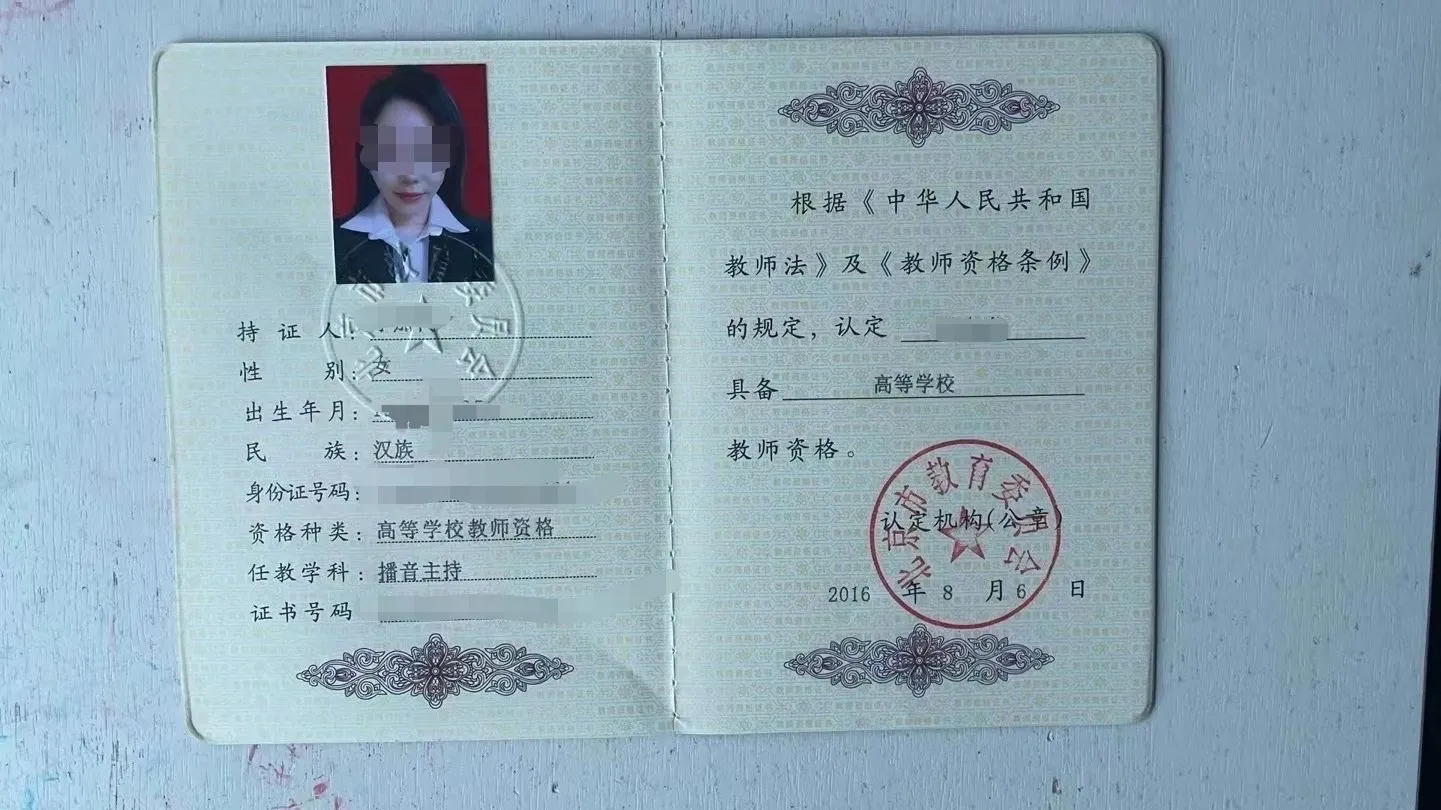 持证人：
性别：女
出生年月：
民族：汉族
身份证号码：
资格种类：高等学校教师资格
任教学科：播音主持
证书号码
根据《中华人民共和国
教师法》及《教师资格条例》
的规定，认定
具备 高等学校
教师资格。
北京市教育委员会
认定机构（公章）
2016 年 8 月 6 日